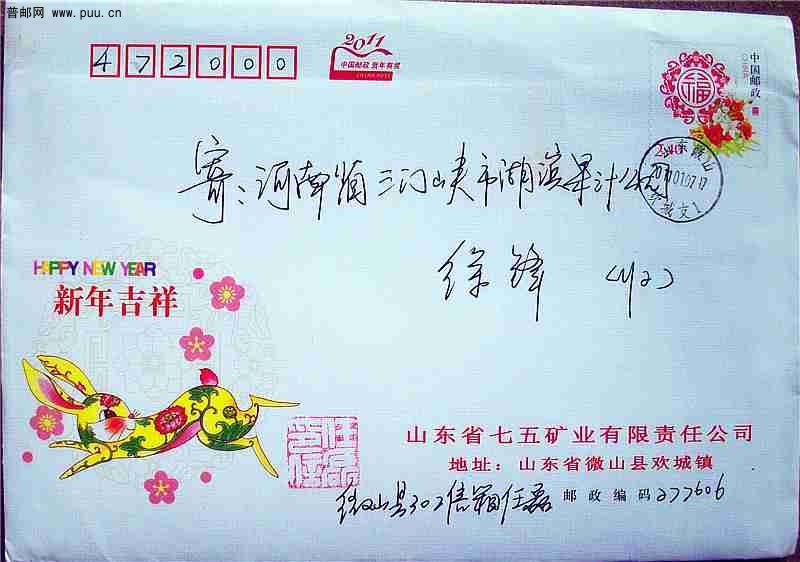 普邮网 www.puu.cn
472000
2011
中国邮政 贺年有奖
中国邮政
福
2.40
山东微山
2011.01.07.17
寄:河南省三门峡市湖滨果汁公司
徐锋 (收)
HAPPY NEW YEAR
新年吉祥
山东省七五矿业有限责任公司
地址:山东省微山县欢城镇
微山县302信箱任磊 邮政编码 277606